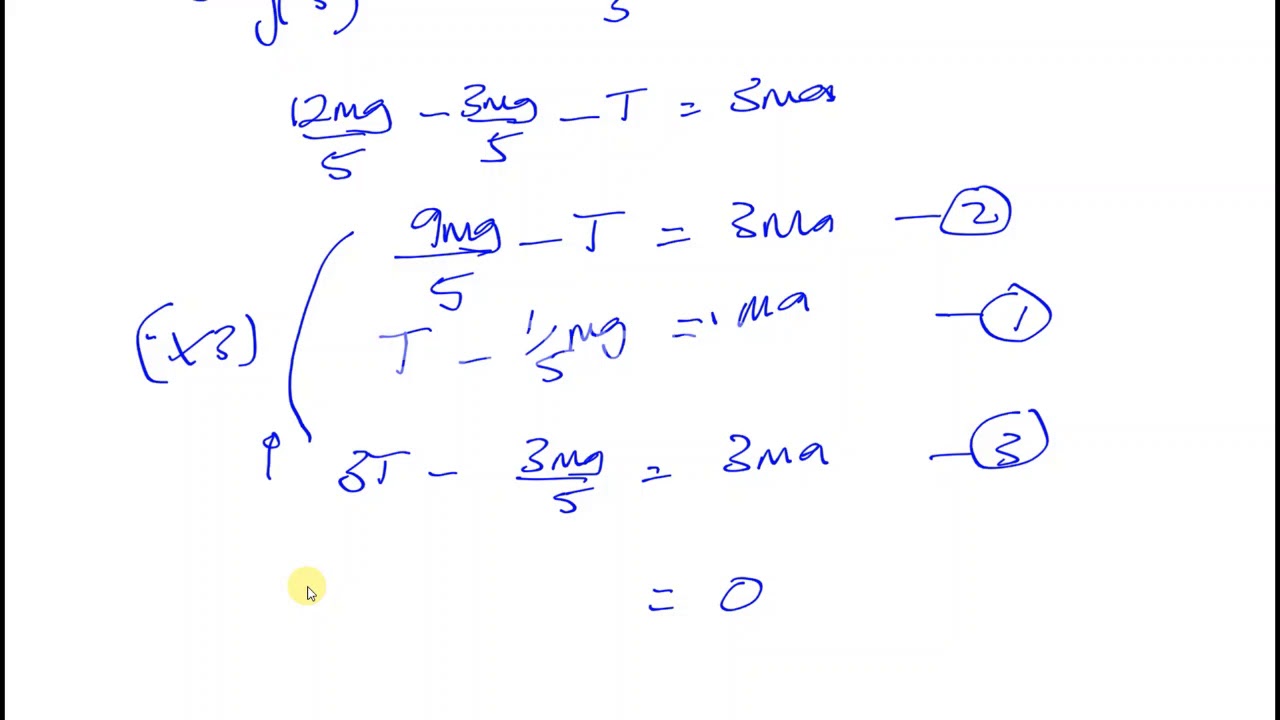 12mg/5 - 3mg/5 - T = 3ma
9mg/5 - T = 3ma - 2
T - 1/5 mg = ma - 1
(x3)
3T - 3mg/5 = 3ma - 3
= 0